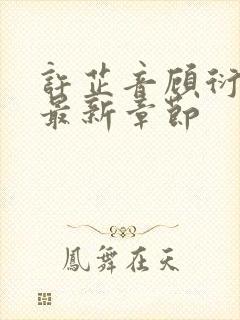 許芷音顾衍
最新章節
鳳舞在天